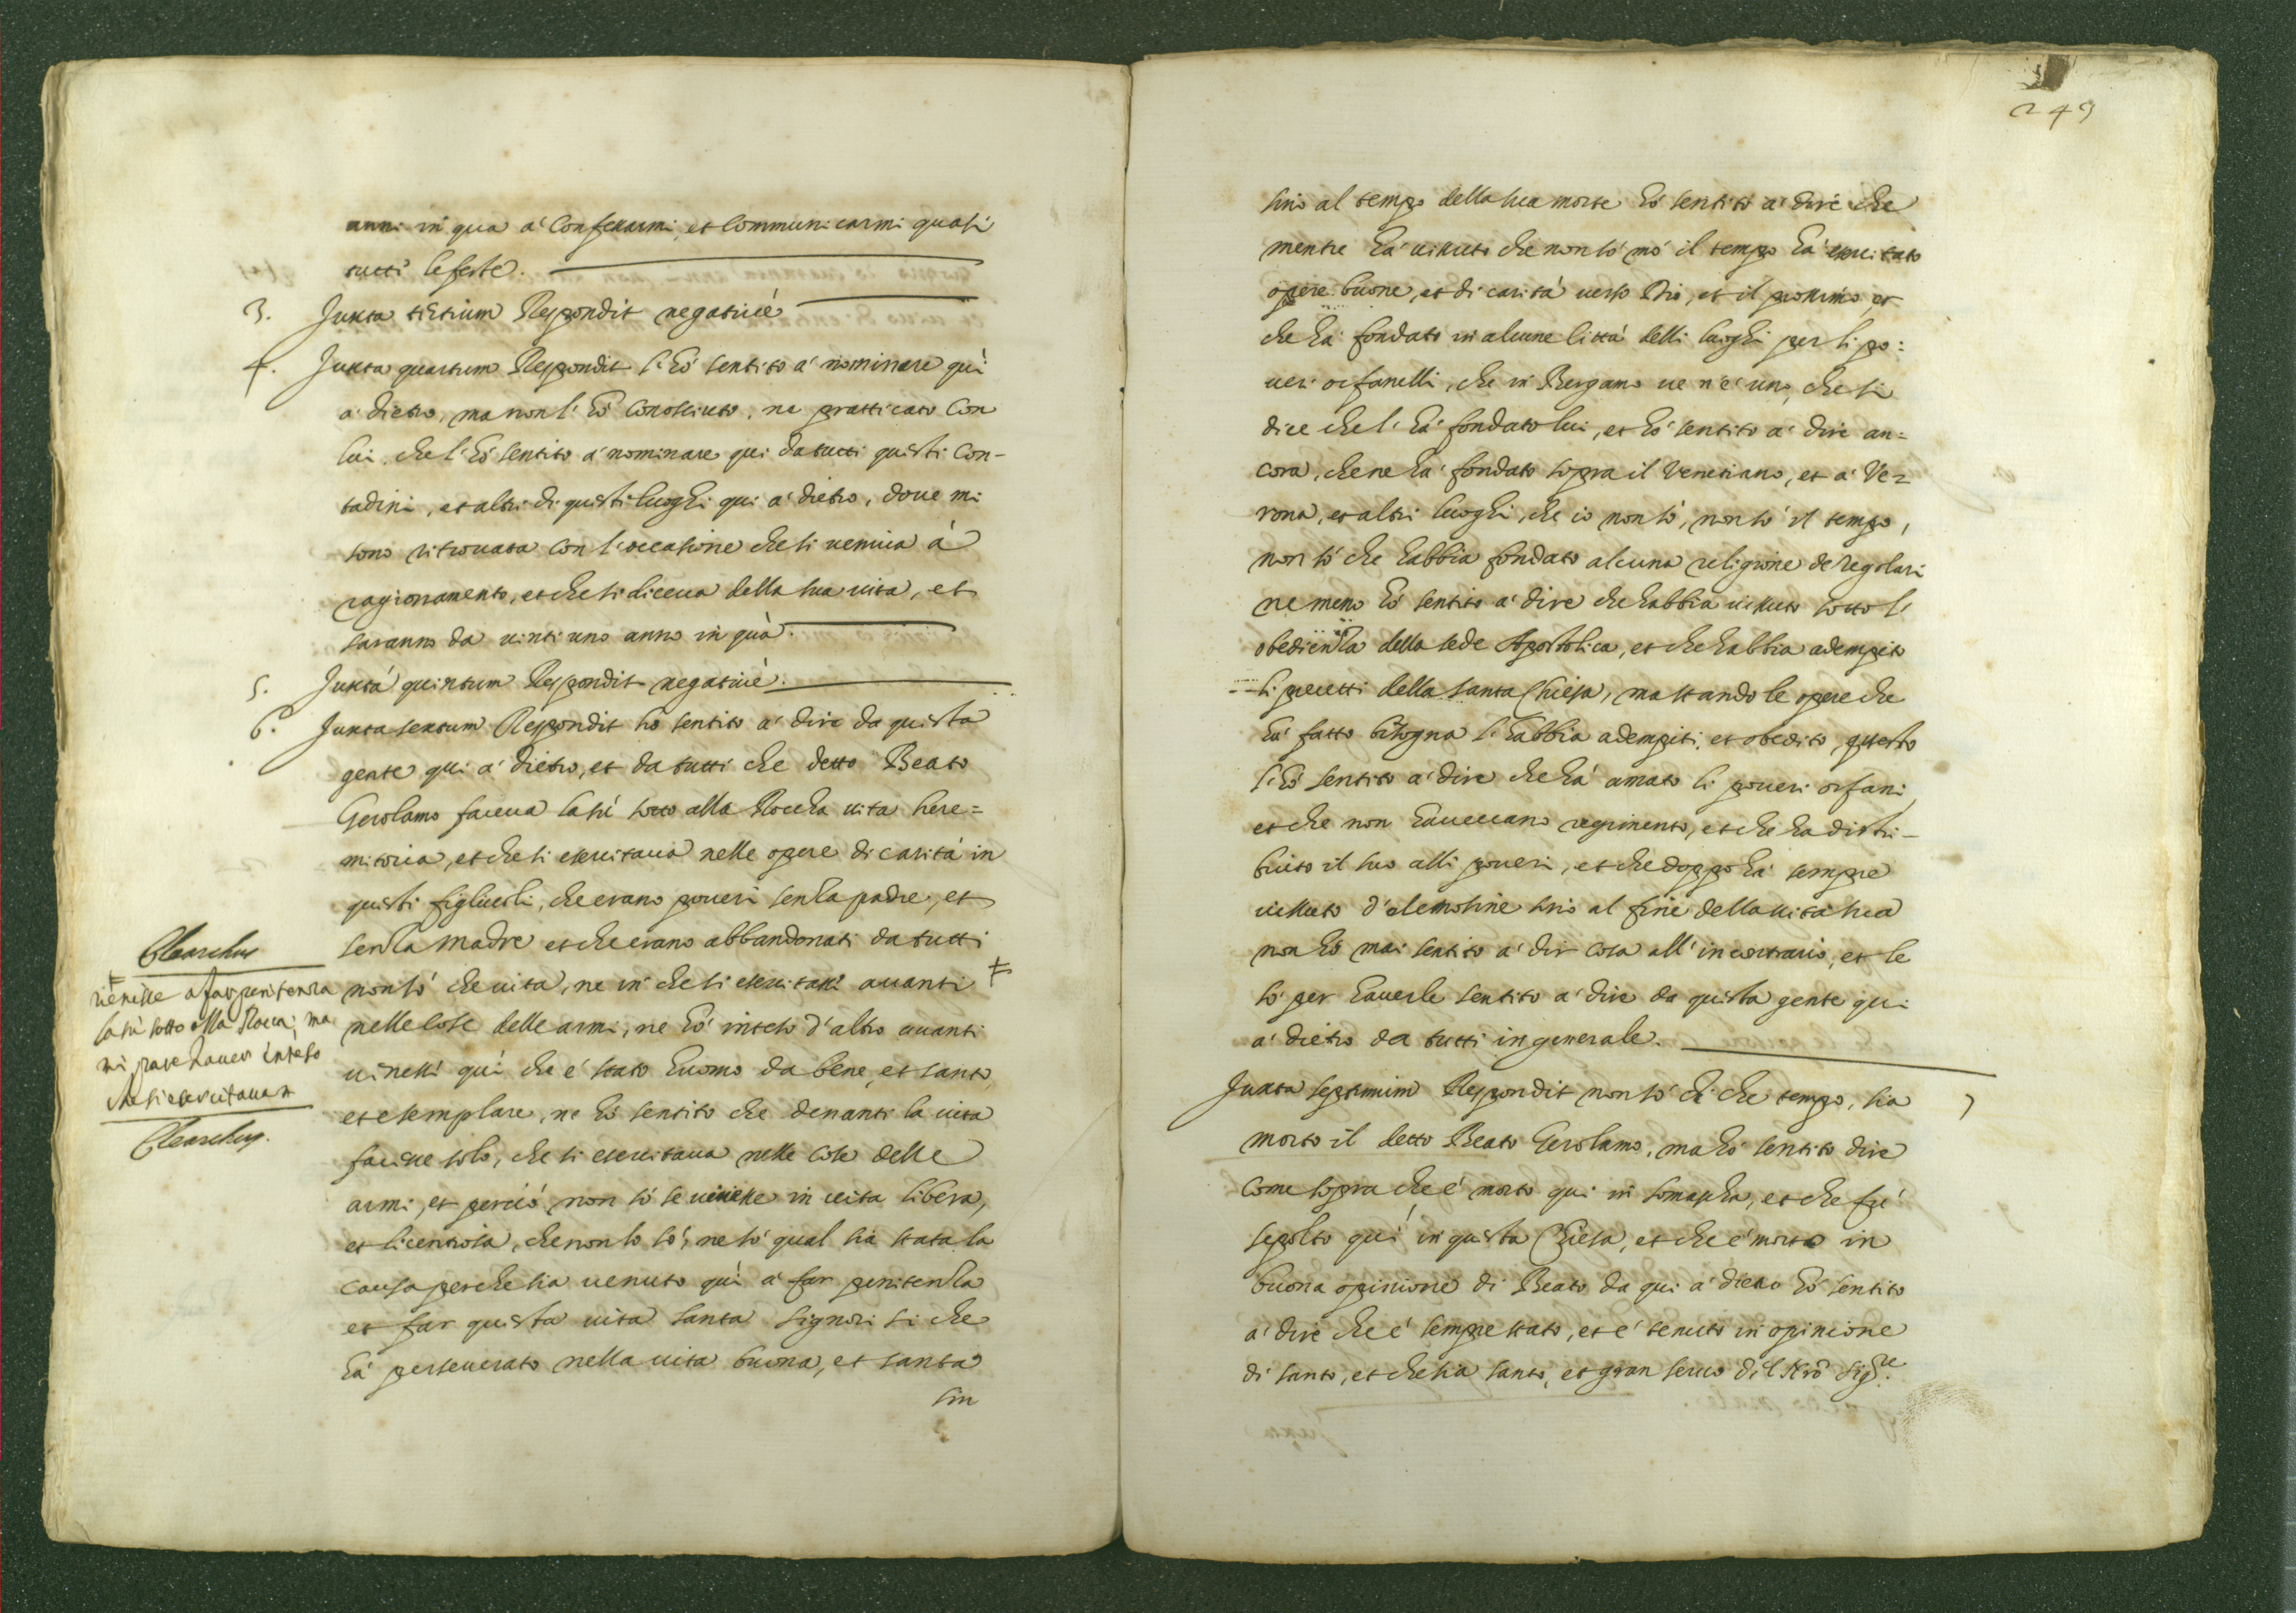 anni in qua a' Confessarmi, et Communicarmi quasi
tutti le feste.
3. Juxta tertium Respondit negativè
4. Juxta quartum Respondit l'hò sentito a' nominare quì
a' dietro, ma non l'hò Conosciuto, ne pratticato con
lui, che l'hò sentito a' nominare qui da tutti questi Con-
tadini, et altri di questi luoghi qui a' dietro, doue mi
sono ritrouata con l'occasione che si ueniua à
ragionamento, et che si diceua della sua uita, et
saranno da uinti uno anno in quà.
5. Juxtà quintum Respondit negativè.
6. Juxta sextum Respondit hò sentito a' dire da questa
gente qui a' dietro, et da tutti che detto Beato
Gerolamo faceua lasù sotto alla Roccha uita here=
mitoria, et che si esercitaua nelle opere di carità in
questi figliuoli, che erano poueri senza padre, et
senza madre et che erano abbandonati da tutti
non sò che uita, ne in che si esercitassi auanti ‡
nelle cose delle armi, ne hò inteso d'altro auanti
uinessi quì che é stato huomo da bene, et santo,
et esemplare, ne hò sentito che denanti la uita
facesse solo, che si esercitaua nelle cose delle
armi, et perciò non sò se uiuesse in uita libera,
et licentiosa, che non lo sò, ne sò qual sia stata la
causa perche sia uenuto quì a' far penitenza
et far questa uita santa signori si che
hà perseuerato nella uita buona, et santa
sin
Clearchus
‡
uenisse a far penitenza
lasù sotto alla Rocca, ma
mi pare hauer inteso
che si esercitaua
Clearchus.
249
sino al tempo della sua morte hò sentito a' dire che
mentre hà uissuto che non sò mò il tempo hà esercitato
opere buone, et di carità uerso Dio, et il prossimo, et
che hà fondato in alcune Città delli luoghi per li po:
ueri orfanelli, che in Bergamo ue n'é uno, che si
dice che l'hà fondato lui, et hò sentito a' dire an=
cora, che ne hà fondato sopra il Venetiano, et a' Ve=
rona, et altri luoghi, che io non sò, non sò il tempo,
non sò che habbia fondato alcuna religione de regolari
ne meno hò sentito a' dire che habbia uissuto sotto l'
obedienza della sede Apostolica, et che habbia adempito
li precetti della santa Chiesa, ma stando le opere che
hà fatto bisogna l'habbia adempiti, et obedito, questo
l'hò sentito a' dire che hà amato li poueri orfani,
et che non haueuano regimento, et che ha distri-
buito il suo alli poueri, et che doppo hà sempre
uissuto d'elemosine sino al fine della uita sua
non hò mai sentito a' dir cosa all'incontrario, et le
sò per hauerle sentito a' dire da questa gente qui
a' dietro da tutti in generale.
Juxta septimum Respondit non sò di che tempo, sia 7
morto il detto Beato Gerolamo, ma hò sentito dire
come sopra che é morto qui in somascha, et che fù
sepolto qui in questa Chiesa, et che é morto in
buona opinione di Beato da qui a' dietro hò sentito
a' dire che é sempre stato, et é tenuto in opinione
di santo, et che sia santo, et gran seruo dil Nrō sigre.